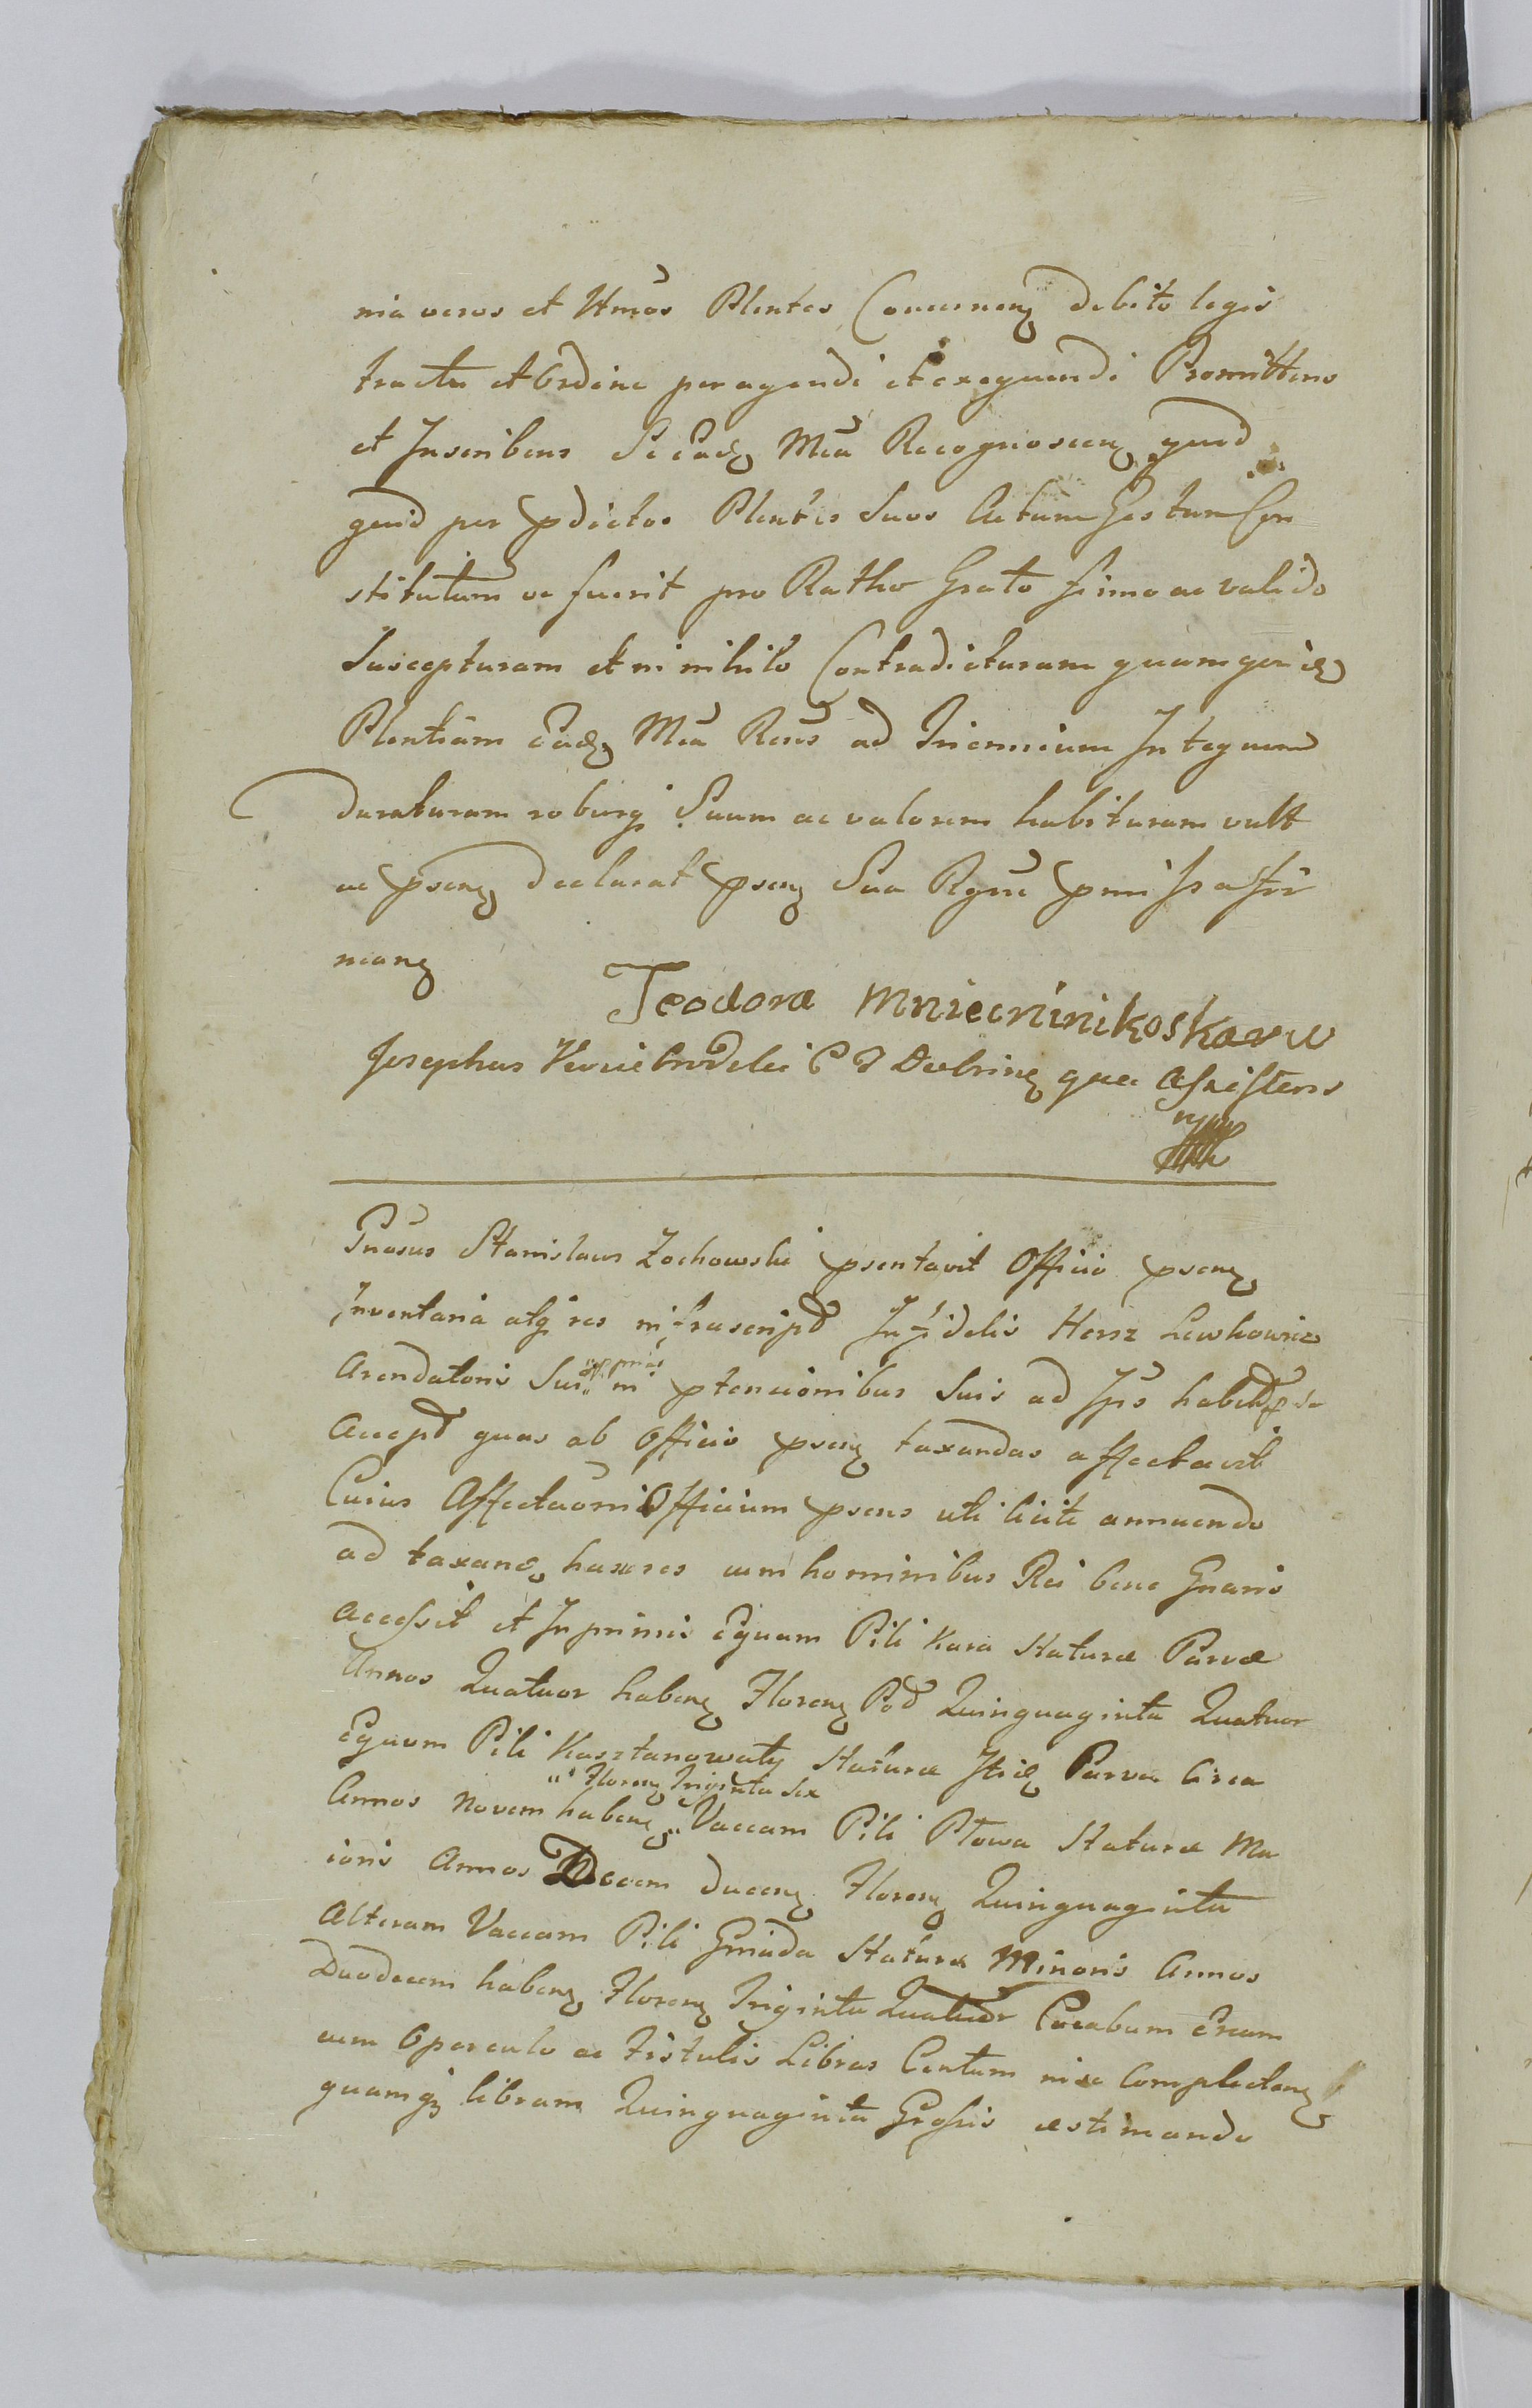 nia veros et ltmos Plentes Concernen debito legis
tractu et Ordine peragendi et exequendi Promittens
et Inscribens Se Eadē Mca Recognoscen quod
quid per pdictos Plentes Suos Actum Gestum Con
stitutum ve fuerit pro Ratho Grato firmo ac valido
Suscepturam et in nihilo Contradicturam quamquidē
Plentiam Eadē Mca Rcns ad Triennium Integrum
duraturam roburq Suum ac valorem habituram vult
ac psen declarat psen Sua Rgne pmissa affir
man
Teodora
Josephus C T Dobrinen qua Assistens
mpp
Gnosus Stanislaus Zochowski psentavit Officio psen
Inventaria atq res infrascript Infidelis Hersz Lewkowicz
Arendatoris Sui in ptensionibus Suis ad Ips habit p se
Accept quas ab Officio psen taxandas affectavit
Cuius Affectaõni Officium psens uti licite annuendo
ad taxand hasce res cum hominibus Rei bene Gnaris
accessit et Inprimis Equam Pili Kara Staturæ Parvæ
Annos Quatuor haben Floren Pol Quinquaginta Quatuor
Equum Pili Kasztanowaty Staturæ Itid Parvæ Circa
" Floren Triginta Sex
Annos Novem haben " Vaccam Pili Płowa Staturæ Ma
ioris Annos Decem ducen Floren Quinquaginta
Alteram Vaccam Pili Gniada Staturæ Minoris Annos
Duodecem haben Floren Triginta Quatuor Cacabum Ereum
cum Operculo ac Fistulis Libras Centum in se Complecten
quamq libram Quinquaginta Grossis æstimando